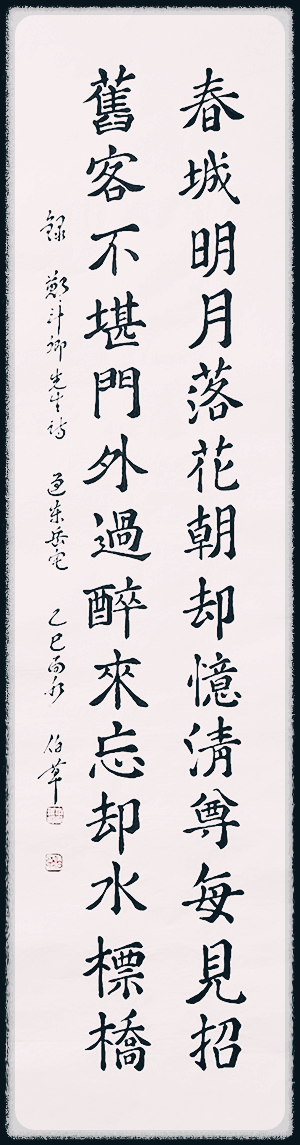 春城明月落花朝却憶清尊每見招
舊客不堪門外過醉來忘却水標橋
錄 鄭斗卿先生詩 過東岳宅 乙巳雨水 伯華